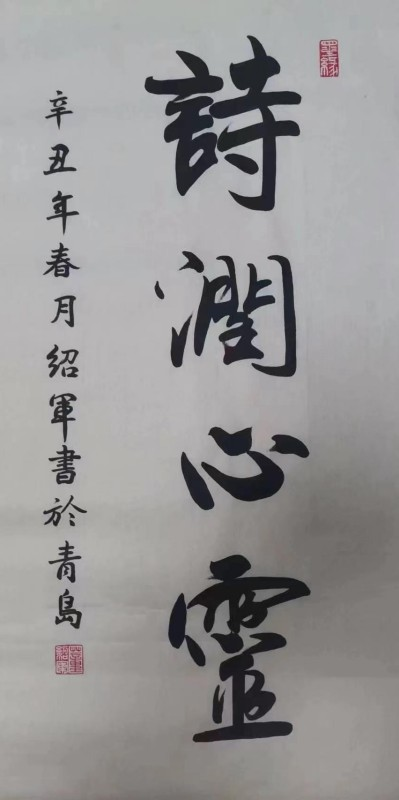 詩潤心靈
辛丑年春月紹軍書於青島